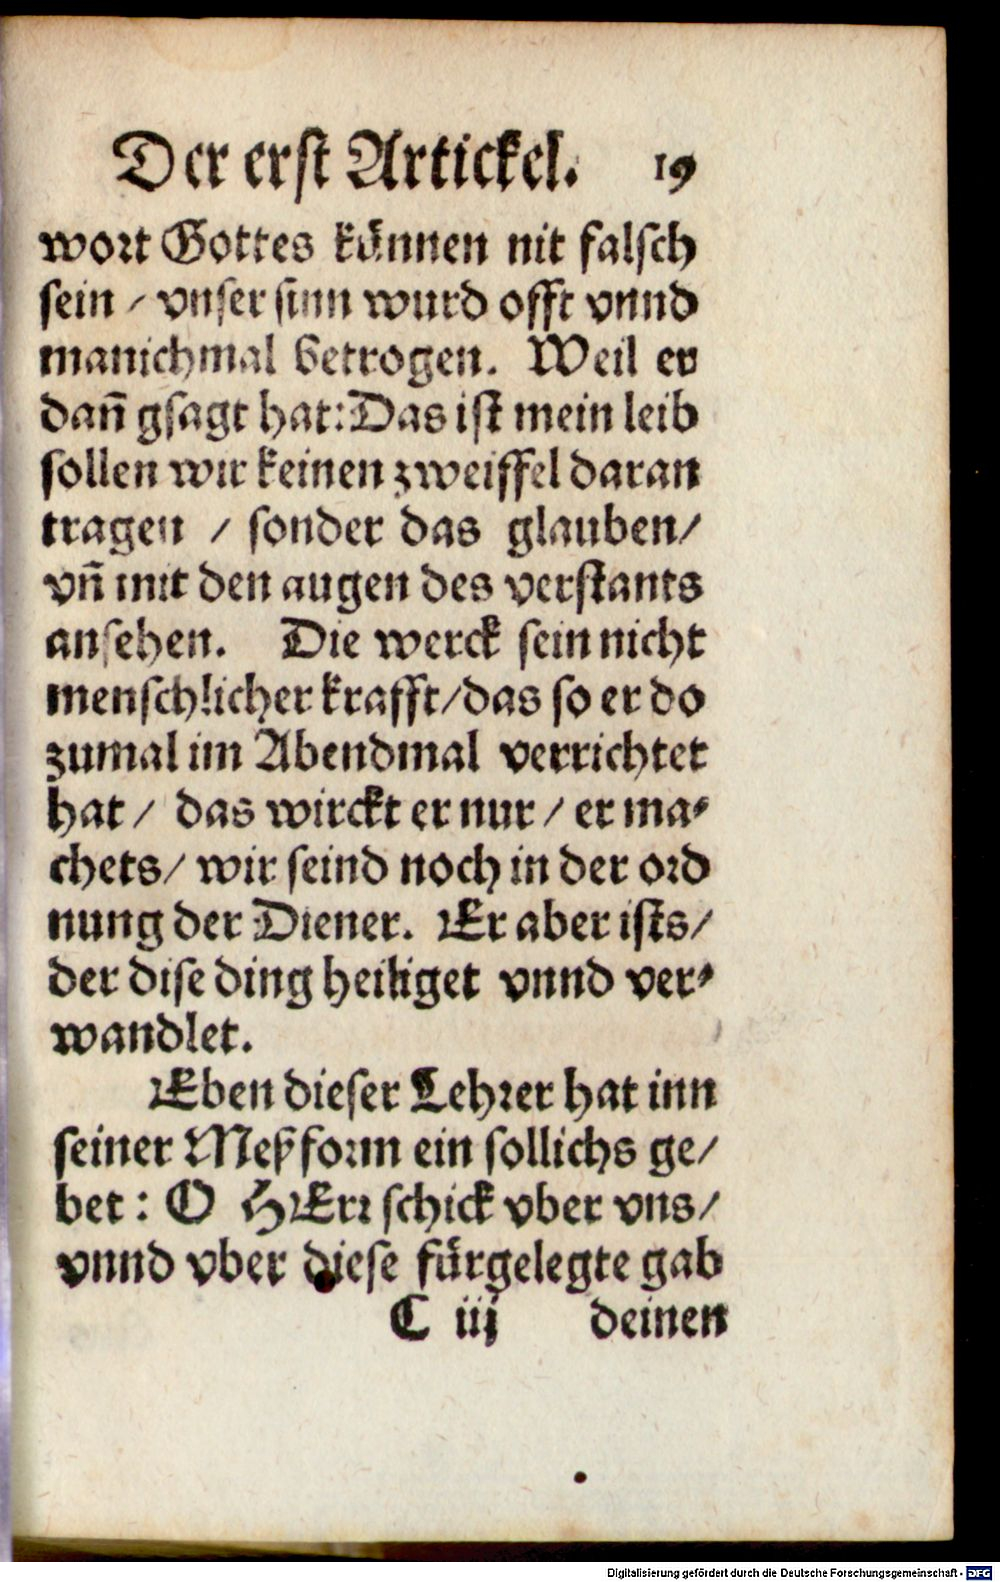 Der erst Artickel. 19
wort Gottes können nit falsch
sein / vnser sinn wurd offt vnnd
manichmal betrogen. Weil er
dañ gsagt hat: Das ist mein leib
sollen wir keinen zweiffel daran
tragen / sonder das glauben /
vñ mit den augen des verstants
ansehen. Die werck sein nicht
menschlicher krafft / das so er do
zumal im Abendmal verrichtet
hat / das wirckt er nur / er ma⸗
chets / wir seind noch in der ord
nung der Diener. Er aber ists /
der dise ding heiliget vnnd ver⸗
wandlet.
Eben dieser Lehrer hat inn
seiner Meßform ein sollichs ge /
bet : O HErr schick vber vns /
vnnd vber diese fürgelegte gab
C iij deinen
Digitalisierung gefördert durch die Deutsche Forschungsgemeinschaft - DFG